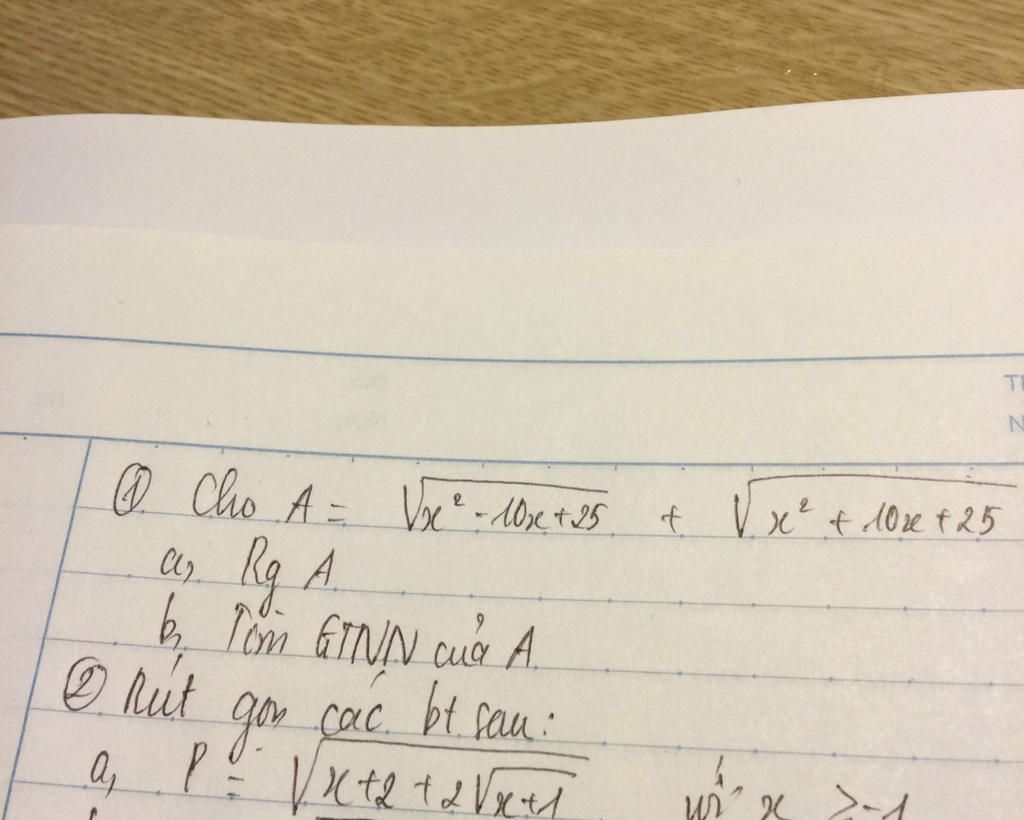 ① Cho A = √(x² - 10x + 25) + √(x² + 10x + 25)
a, Rg A
b, Tìm GTNN của A
② Rút gọn các bt sau:
a, P = √(x + 2 + 2√(x + 1)) với x ≥ -1